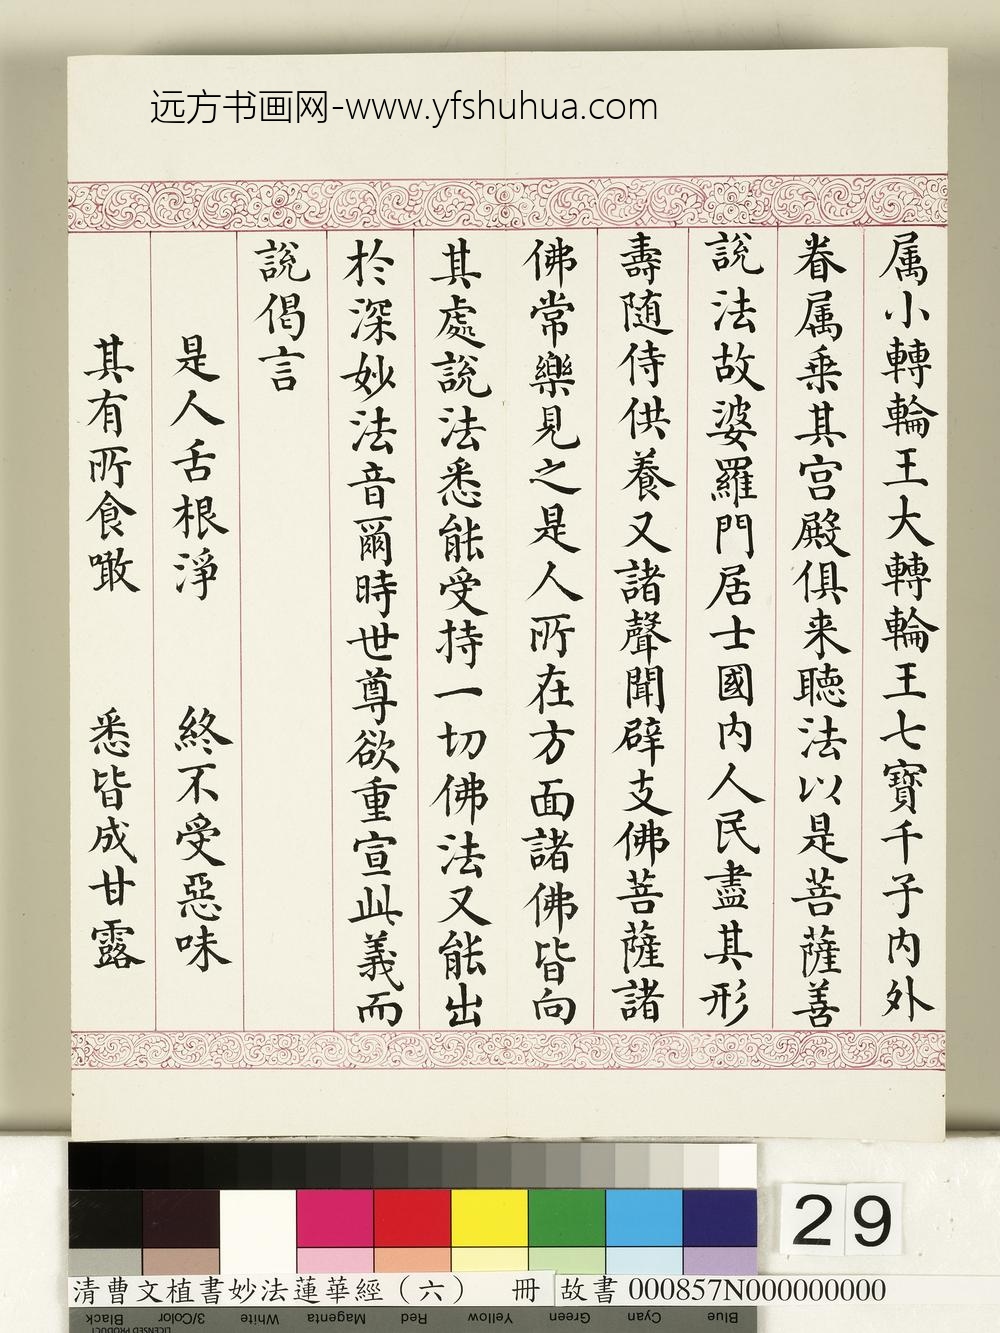 远方书画网-www.yfshuhua.com
属小轉輪王大轉輪王七寶千子内外
眷属乗其宫殿俱来聽法以是菩薩善
說法故婆羅門居士國内人民盡其形
壽随侍供養又諸聲聞辟支佛菩薩諸
佛常樂見之是人所在方面諸佛皆向
其處說法悉能受持一切佛法又能出
於深妙法音爾時世尊欲重宣此義而
說偈言
是人舌根淨 終不受惡味
其有所食噉 悉皆成甘露
29
清曹文植書妙法蓮華經（六） 冊 故書 000857N000000000
Black 3/Color White Magenta Red Yellow Green Cyan Blue
LICENSED PRODUCT